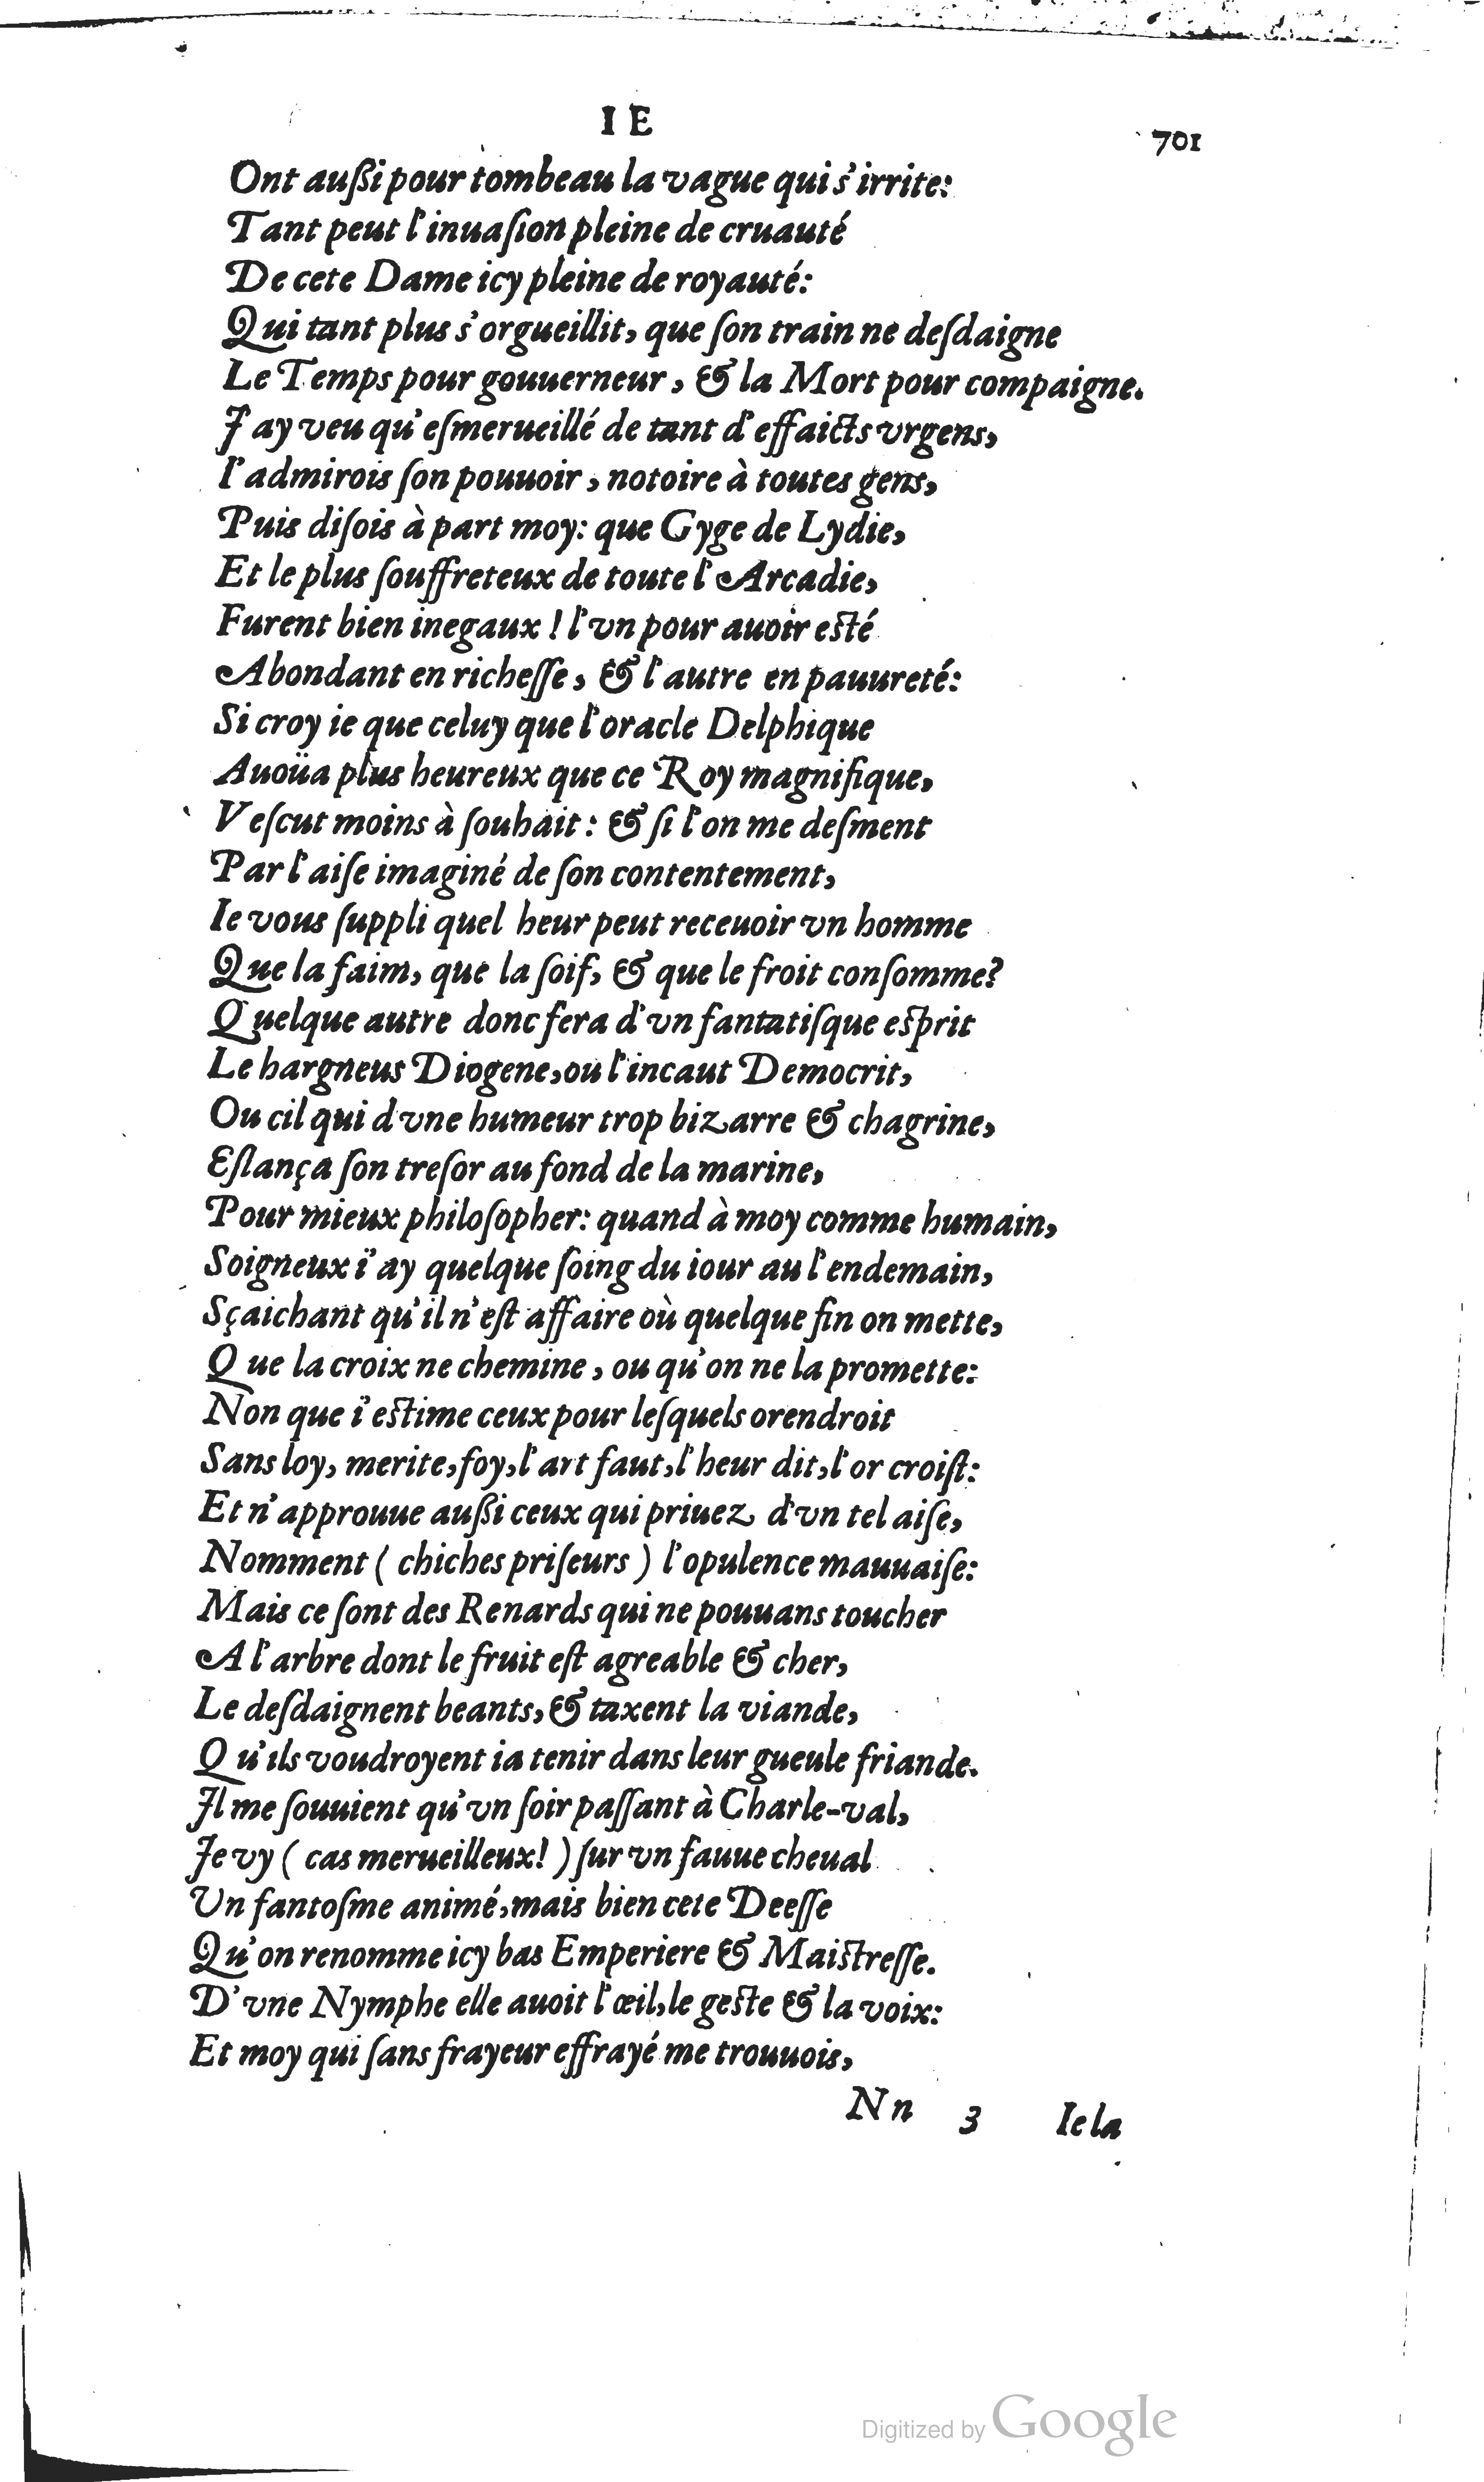 IE
701
Ont außi pour tombeau la vague qui s'irrite:
Tant peut l'inuaſion pleine de cruauté
De cete Dame icy pleine de royauté:
Qui tant plus s'orgueillit, que ſon train ne deſdaigne
Le Temps pour gouuerneur, & la Mort pour compaigne.
J'ay veu qu'eſmerueillé de tant d'effaicts vrgens,
I'admirois ſon pouuoir, notoire à toutes gens,
Puis diſois à part moy: que Gyge de Lydie,
Et le plus ſouffreteux de toute l'Arcadie,
Furent bien inegaux! l'vn pour auoir esté
Abondant en richeſſe, & l'autre en pauureté:
Si croy ie que celuy que l'oracle Delphique
Auoüa plus heureux que ce Roy magnifique,
Veſcut moins à ſouhait: & ſi l'on me deſment
Par l'aiſe imaginé de ſon contentement,
Ie vous ſuppli quel heur peut receuoir vn homme
Que la faim, que la ſoif, & que le froit conſomme?
Quelque autre donc fera d'vn fantatiſque esprit
Le hargneus Diogene, ou l'incaut Democrit,
Ou cil qui d'vne humeur trop bizarre & chagrine,
Eſlança ſon treſor au fond de la marine,
Pour mieux philoſopher: quand à moy comme humain,
Soigneux i'ay quelque ſoing du iour au l'endemain,
Sçaichant qu'il n'eſt affaire où quelque fin on mette,
Que la croix ne chemine, ou qu'on ne la promette:
Non que i'estime ceux pour leſquels orendroit
Sans loy, merite, foy, l'art faut, l'heur dit, l'or croiſt:
Et n'approuue außi ceux qui priuez d'vn tel aiſe,
Nomment (chiches priſeurs) l'opulence mauuaiſe:
Mais ce ſont des Renards qui ne pouuans toucher
A l'arbre dont le fruit eſt agreable & cher,
Le deſdaignent beants, & taxent la viande,
Qu'ils voudroyent ia tenir dans leur gueule friande.
Jl me ſouuient qu'vn ſoir paſſant à Charle-val,
Je vy (cas merueilleux!) ſur vn fauue cheual
Un fantoſme animé, mais bien cete Deeſſe
Qu'on renomme icy bas Emperiere & Maistreſſe.
D'vne Nymphe elle auoit l'œil, le geste & la voix:
Et moy qui ſans frayeur effrayé me trouuois,
Nn 3 Ie la
Digitized by Google